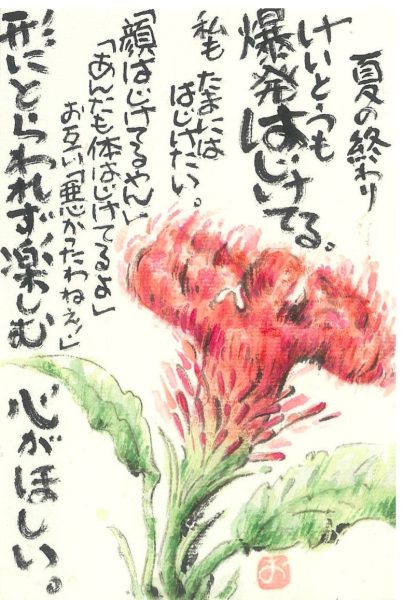 夏の終わり
けいとうも
爆発はじけてる。
私も たまには
はじけたい。
「顔はじけてるやん」
「あんたも体はじけてるよ」
お互い「悪かったわねぇ!」
形にとらわれず楽しむ
心がほしい。
お